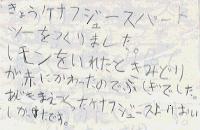 きょうケナフジュースパート
ツーをつくりました。
レモンをいれたときみどり
が赤にかわったのでふしぎでした。
あじをまえつくったケナフジュースよりおいし
しかったです。